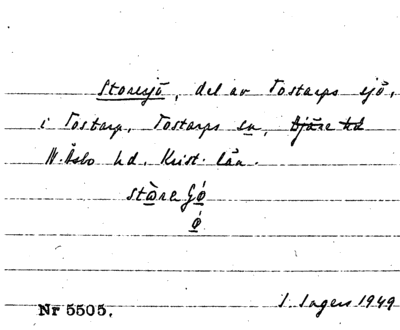 Storesjö, del av Tostarps sjö,
i Tostarp, Tostarps sn, Bjäre hd
N. Åsbo hd. Krist. län.
Nr 5505.
1949